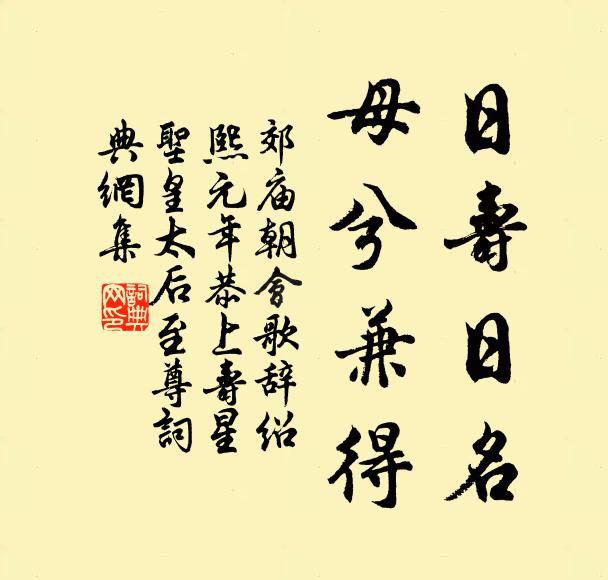 日壽日名
母兮兼得
郊庙朝會歌辞绍
熙元年恭上壽星
聖皇太后至尊詞
典網集
詞典网印